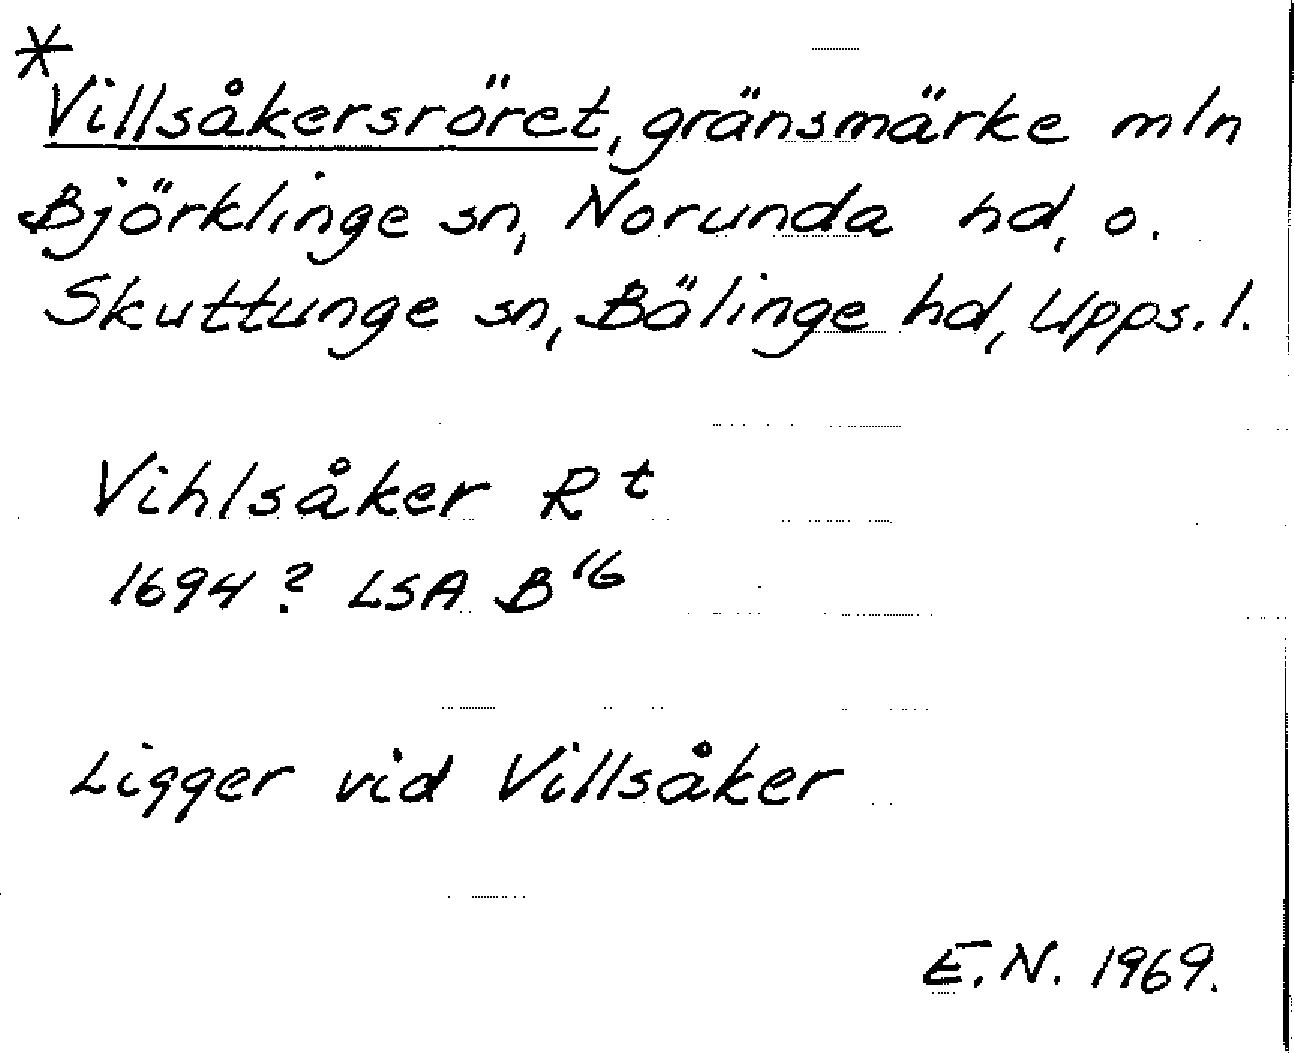 *
Villsåkersröret, gränsmärke mln
Björklinge sn, Norunda hd, o.
Skuttunge sn, Bälinge hd, Upps. l.
Vihlsåker Rt
1694? LSA B16
Ligger vid Villsåker
E.N. 1969.